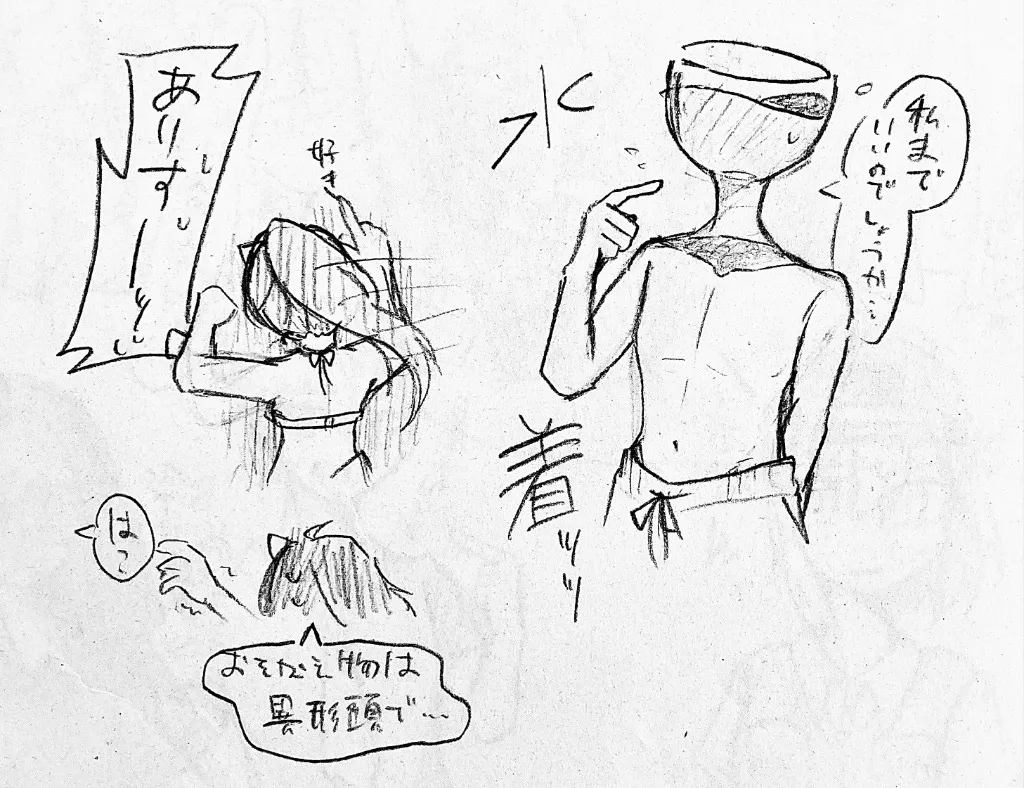 私まで
いいのでしょうか…
水
着ッッ
好き
ありすーッ
はっ
おそなえ物は
異形頭で…